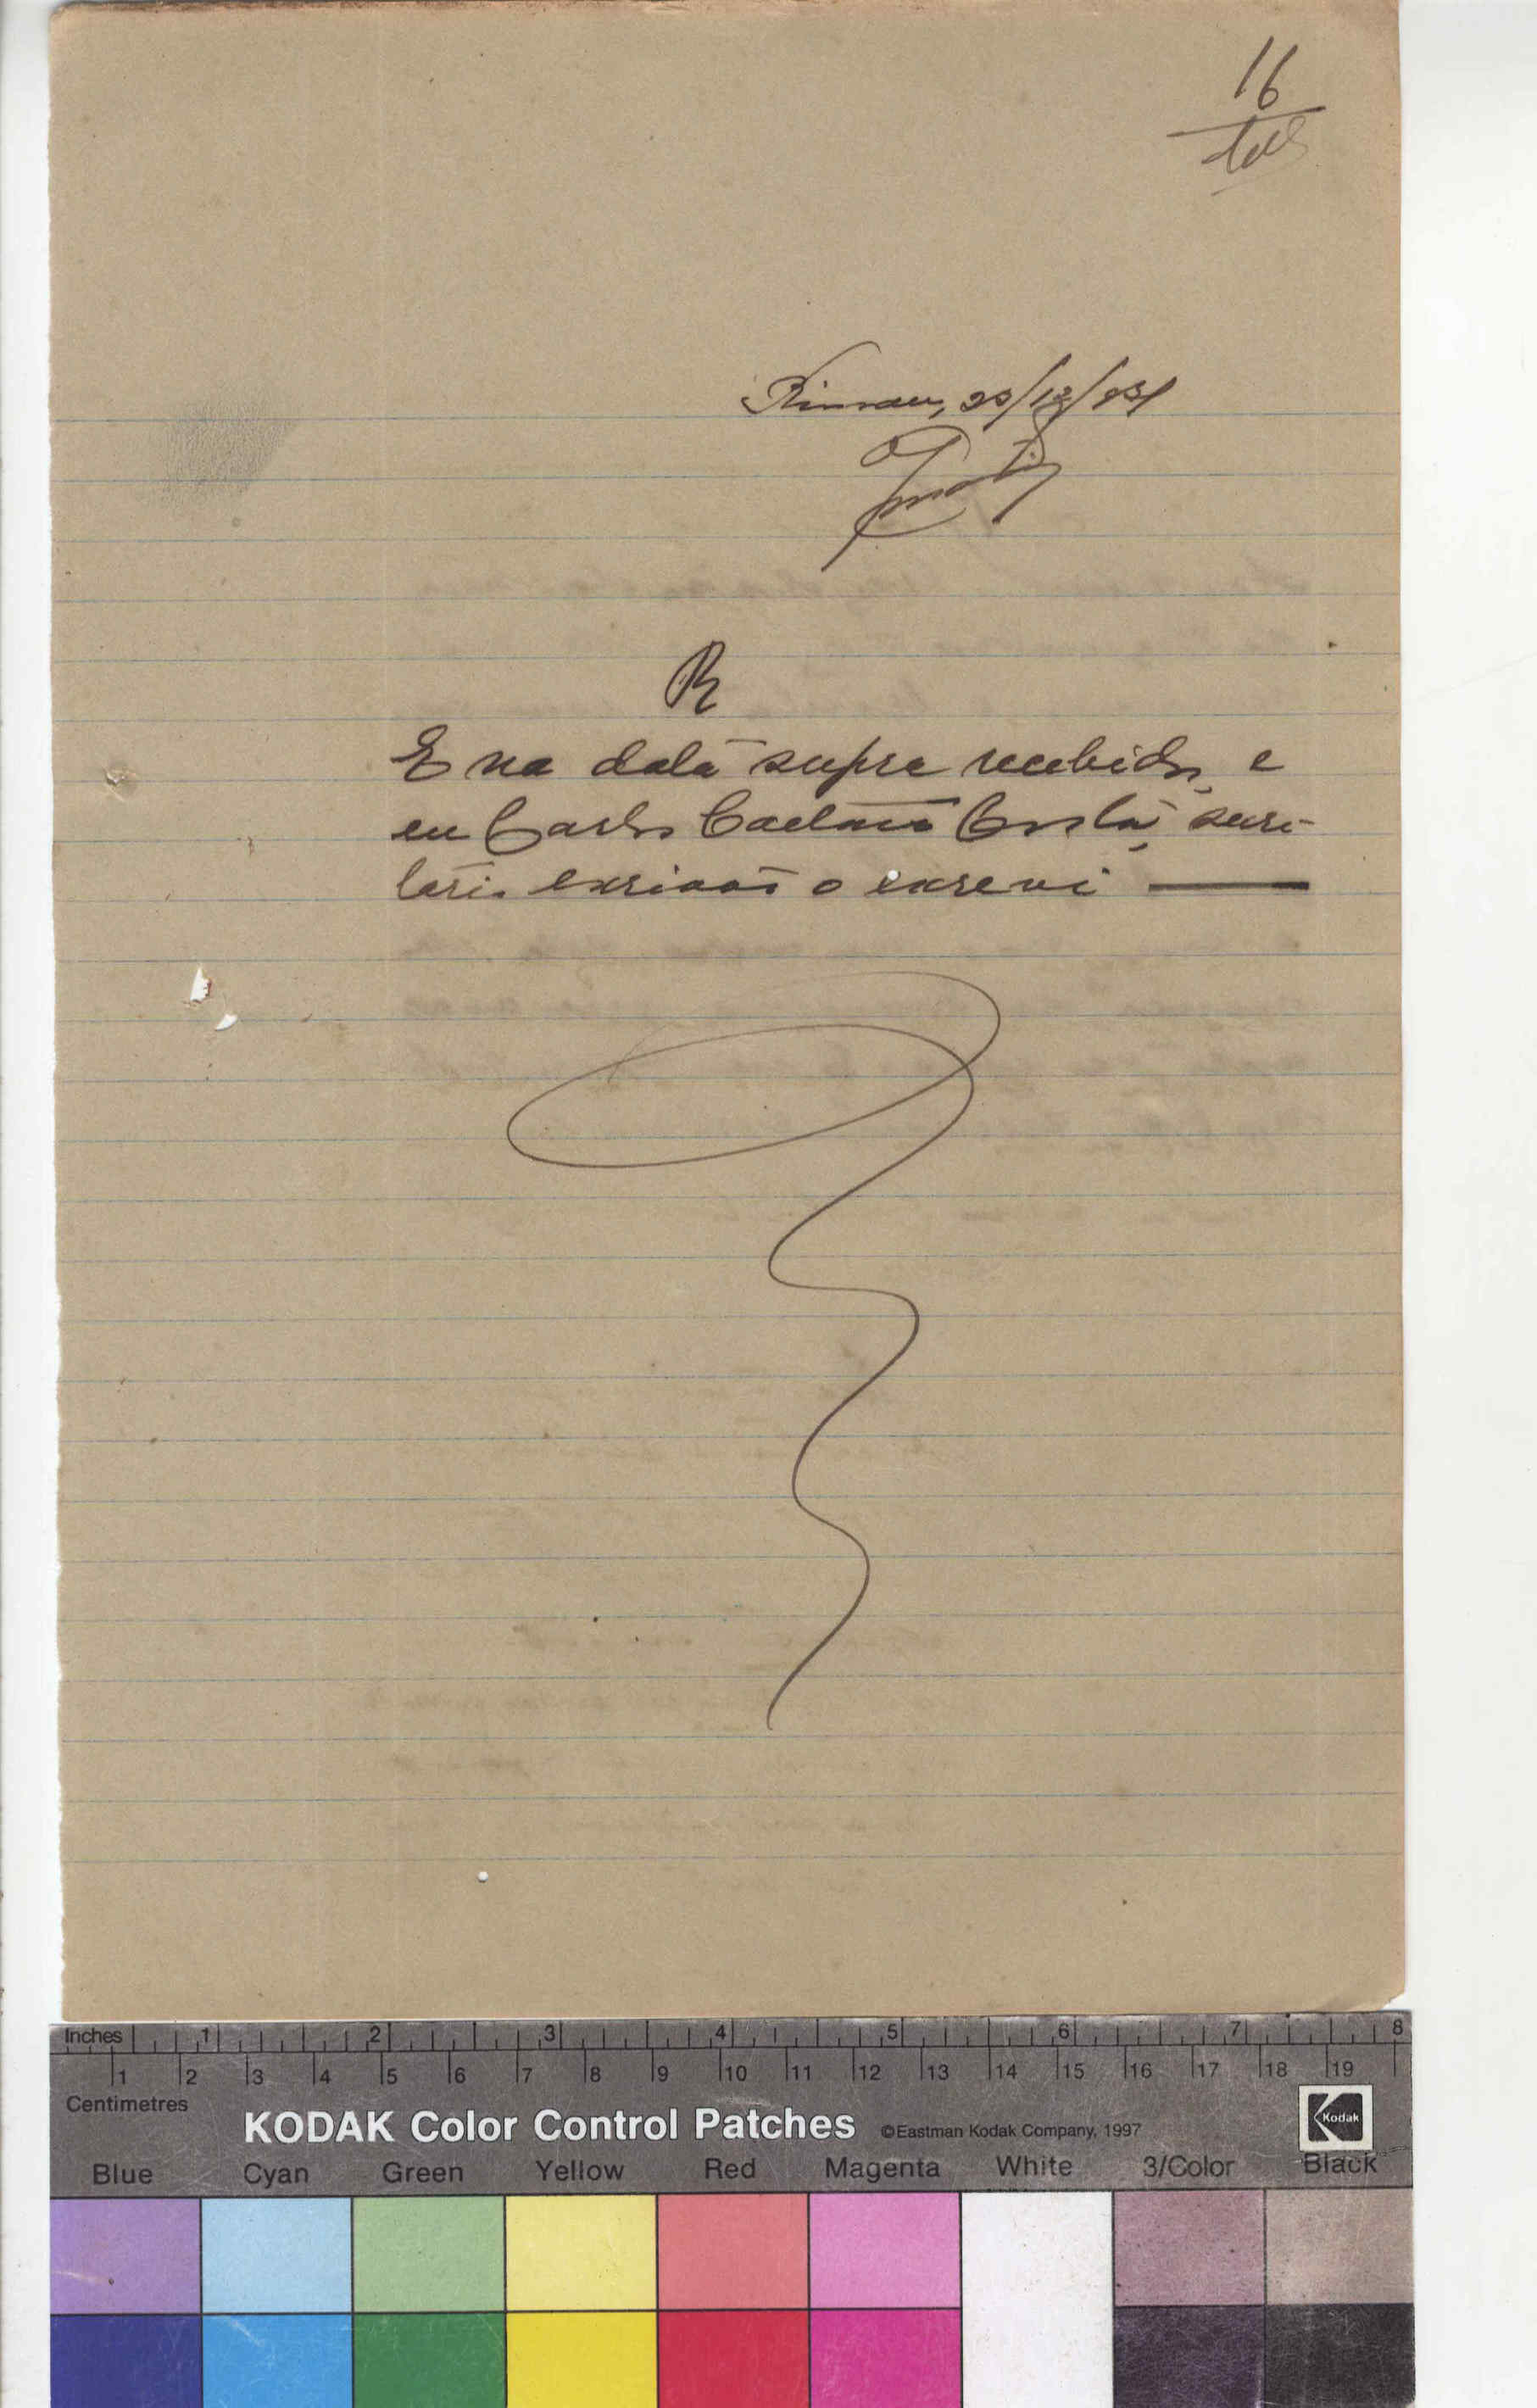 16
20/12/931
R
E na data supra recebidos, e
eu Carlos Caetano Costa, secre-
tario escrivão o escrevi
Inches 1 2 3 4 5 6 7 8
1 2 3 4 5 6 7 8 9 10 11 12 13 14 15 16 17 18 19
Centimetres
KODAK Color Control Patches ©Eastman Kodak Company, 1997 Kodak
Blue Cyan Green Yellow Red Magenta White 3/Color Black